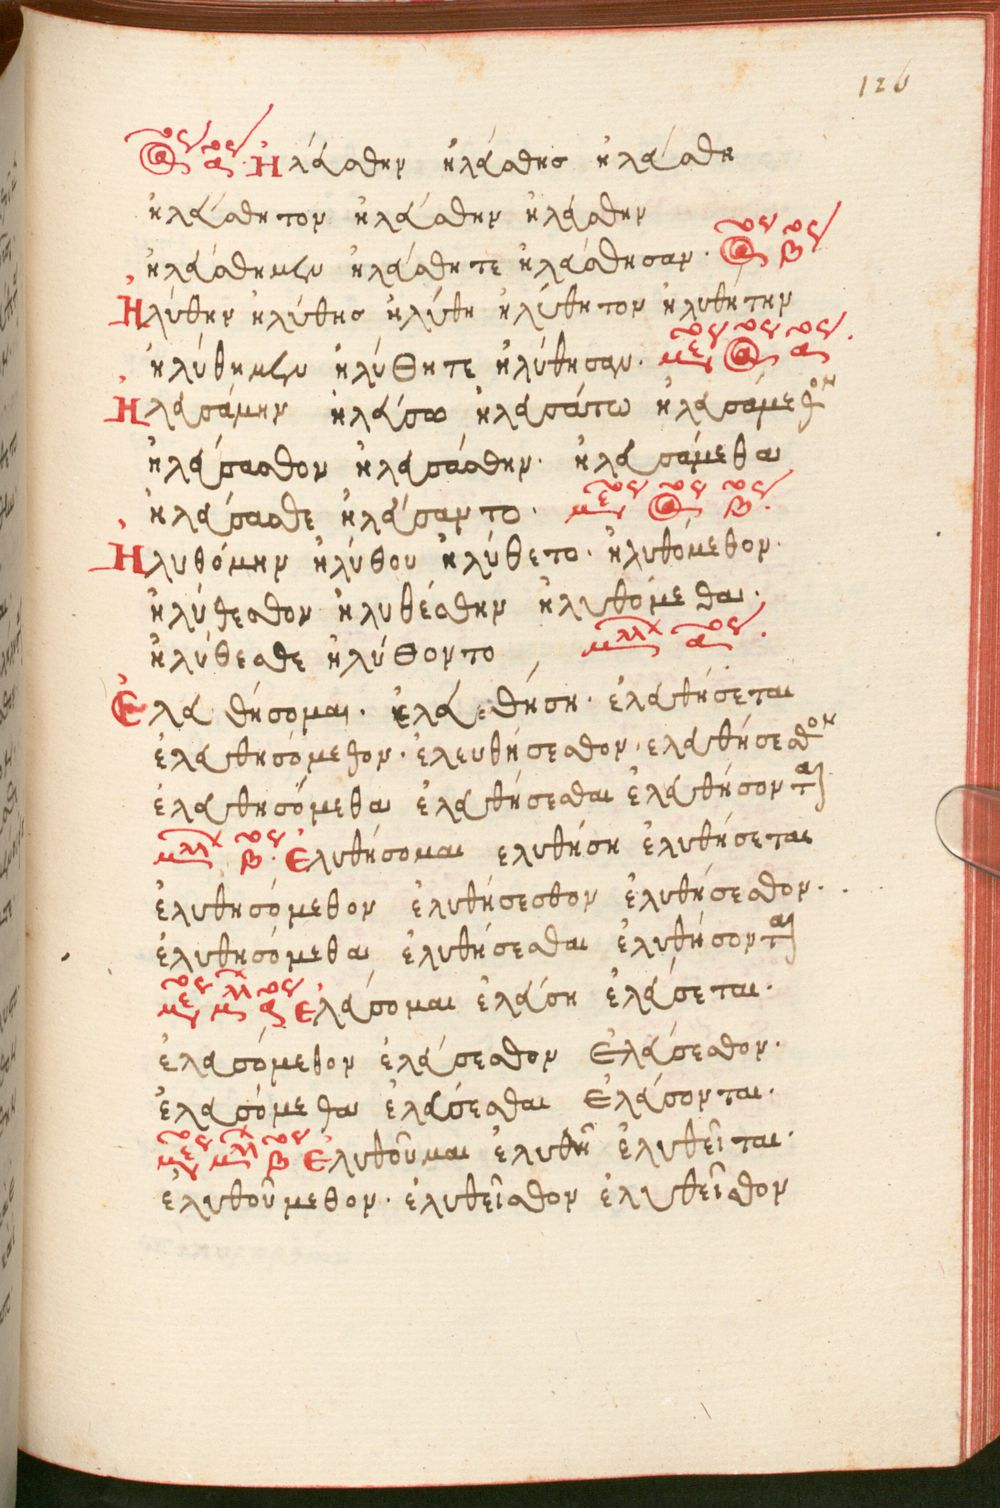 126
ἠλάσθην ἠλάσθησ ἠλάσθη
ἠλάσθητον ἠλάσθην ἠλάσθην
ἠλάσθημεν ἠλάσθητε ἠλάσθησαν·
Ἠλύθην ἠλύθησ ἠλύθη ἠλύθητον ἠλυθήτην
ἠλύθημεν ἠλύθητε ἠλύθησαν·
Ἠλασάμην ἠλάσω ἠλασάτω ἠλασάμεθον
ἠλάσασθον ἠλασάσθην· ἠλασάμεθα
ἠλάσασθε ἠλάσαντο·
Ἠλυθόμην ἠλύθου ἠλύθετο· ἠλυθόμεθον·
ἠλύθεσθον ἠλυθέσθην ἠλυθόμεθα·
ἠλύθεσθε ἠλύθοντο
Ἐλαθήσομαι· ἐλαθήση· ἐλαθήσεται
ἐλαθησόμεθον· ἐλευθήσεσθον· ἐλαθήσεσθον
ἐλαθησόμεθα ἐλαθήσεσθαι ἐλαθήσονται
β· Ἐλυθήσομαι ελυθήση ἐλυθήσεται
ἐλυθησόμεθον ἐλυθήσεσθον ἐλυθήσεσθον·
ἐλυθησόμεθα ἐλυθήσεσθαι ἐλυθήσονται
Ἐλάσομαι ἐλάση ἐλάσεται·
ἐλασόμεθον ἐλάσεσθον Ἐλάσεσθον·
ἐλασόμεθα ἐλάσεσθαι Ἐλάσονται·
β Ἐλυθοῦμαι ἐλυθῆ ἐλυθεῖται·
ἐλυθοῦμεθον· ἐλυθεῖσθον ἐλυθεῖσθον